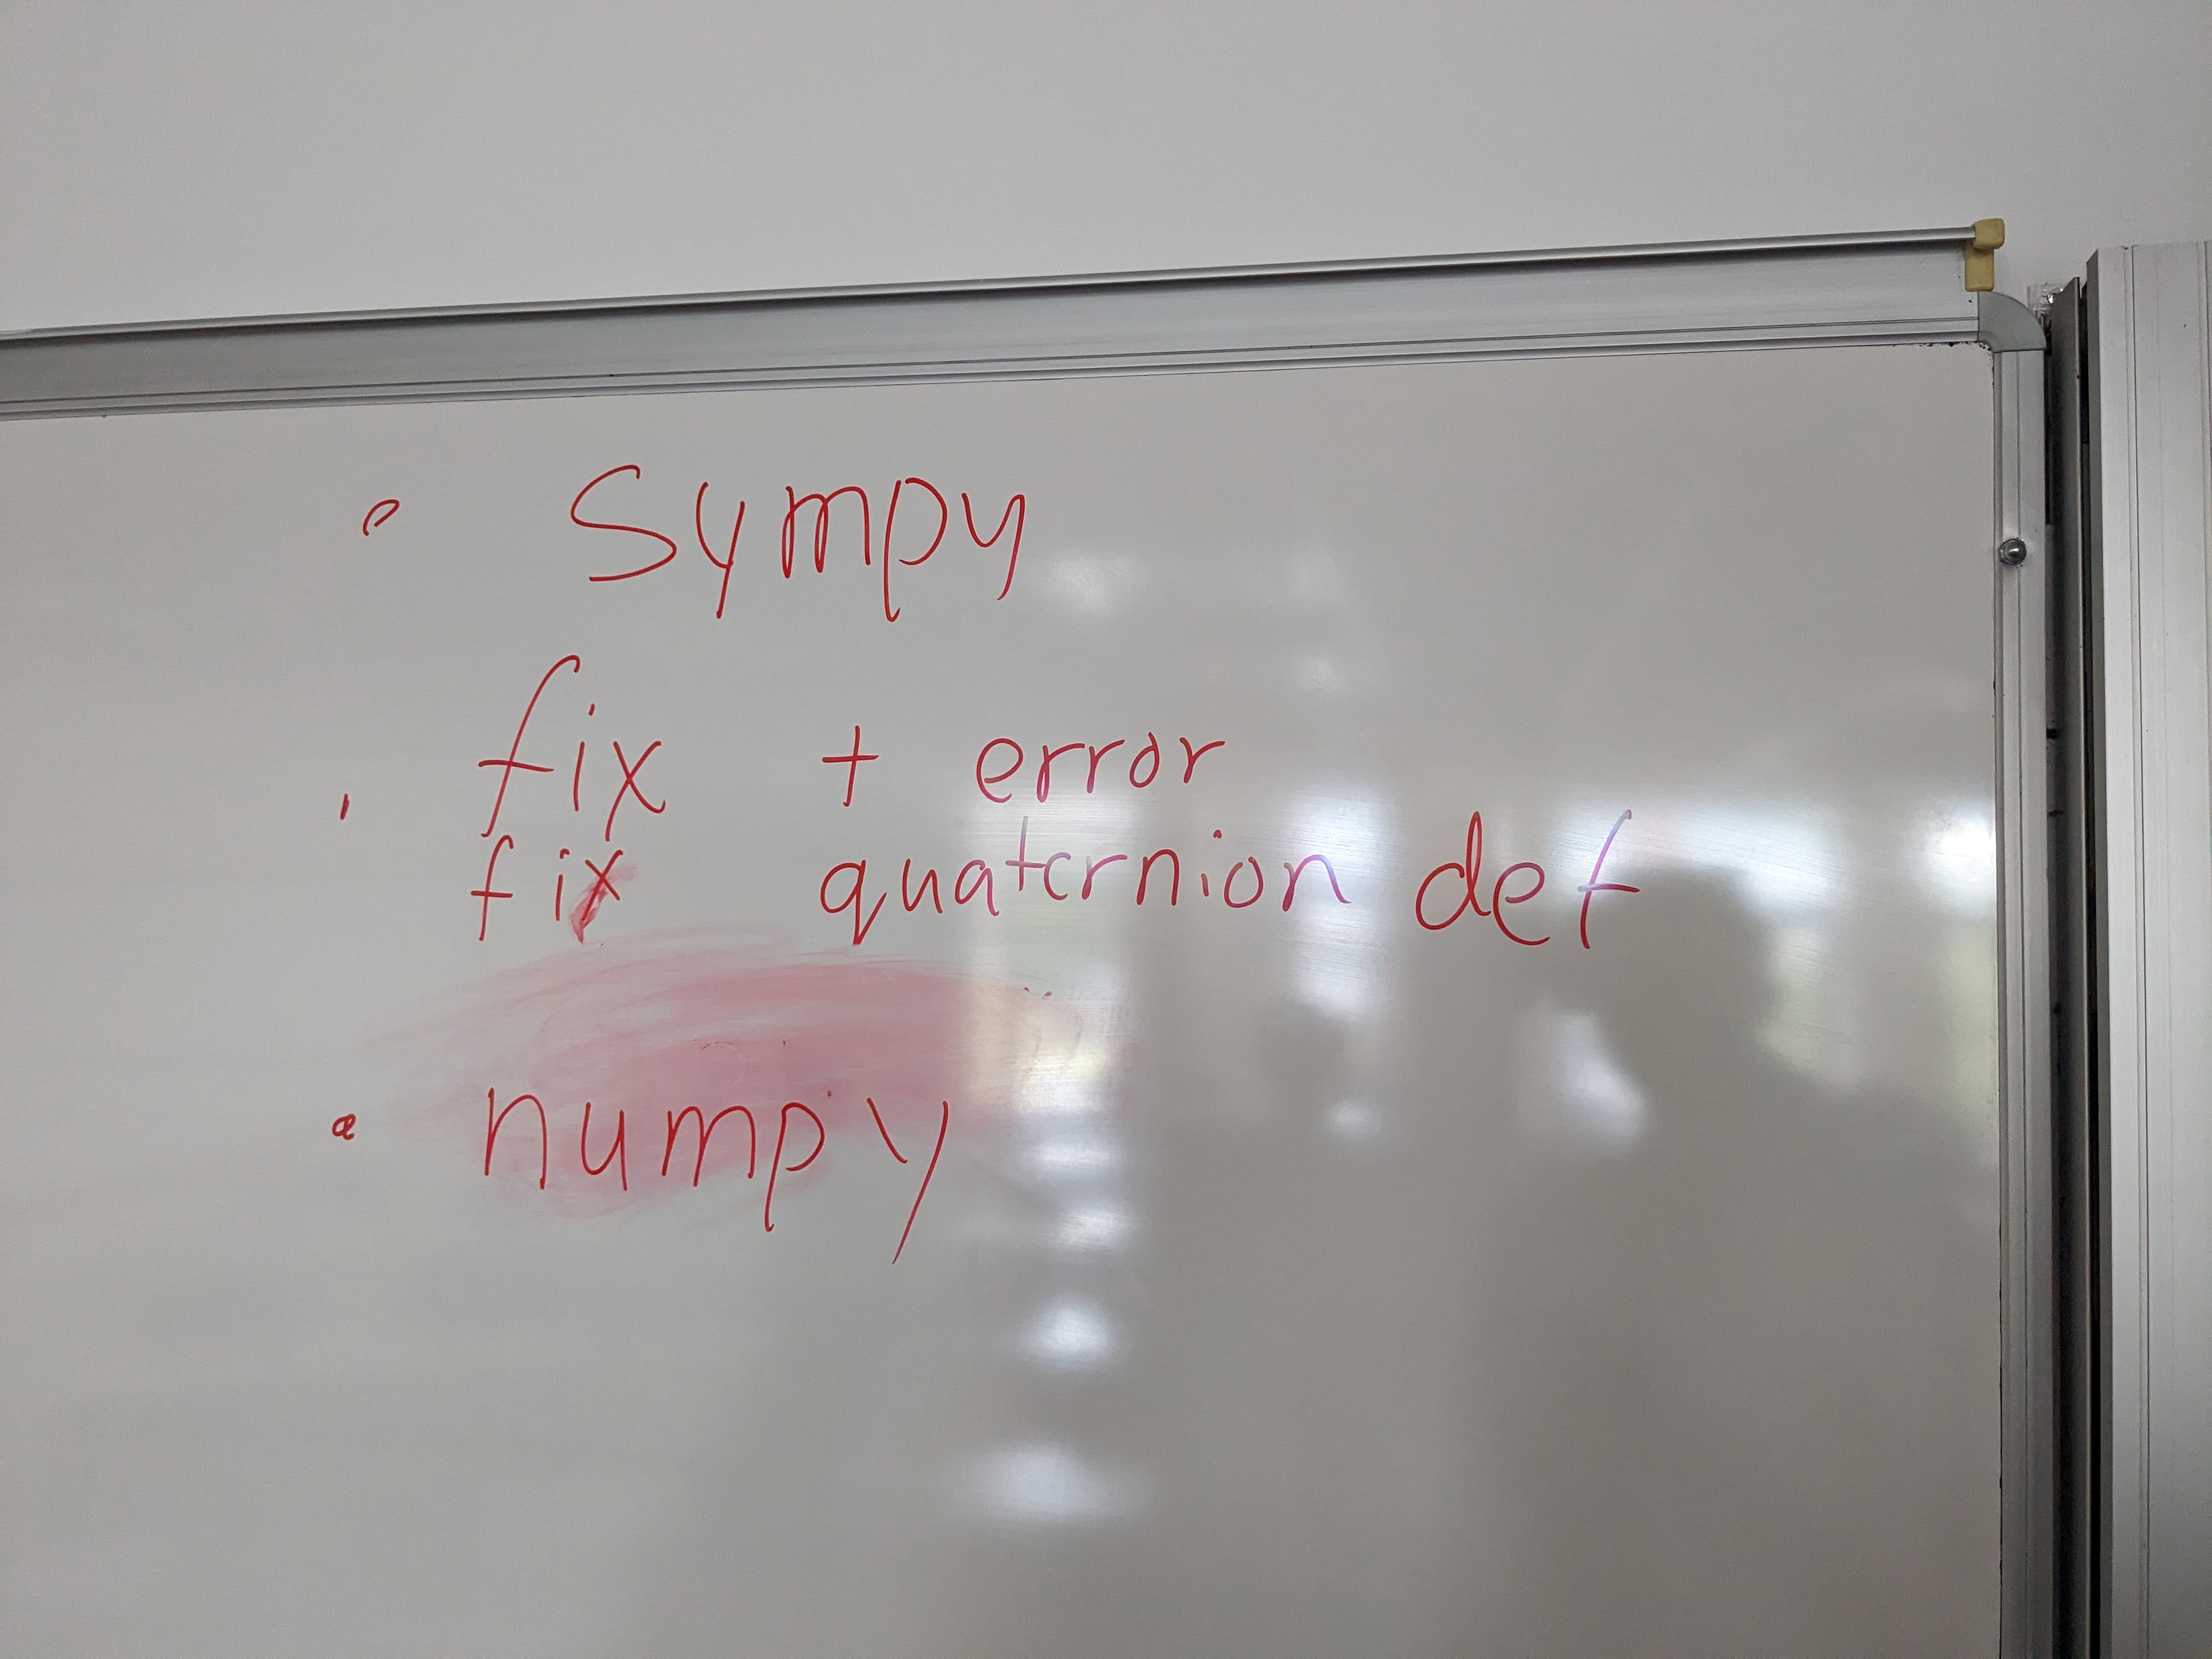 • Sympy
• fix + error
fix quaternion def
• numpy